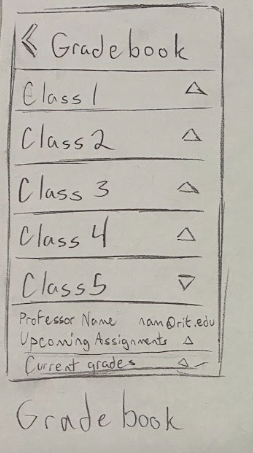 Gradebook
Class 1
Class 2
Class 3
Class 4
Class 5
Professor Name nam@rit.edu
Upcoming Assignments
Current grades
Gradebook